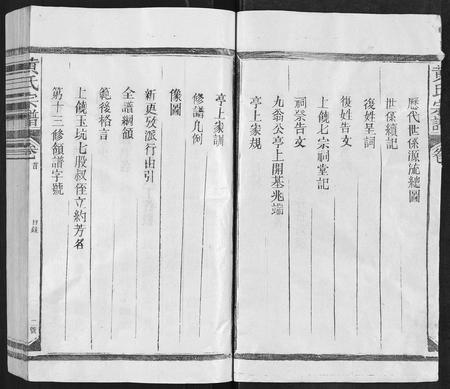 歷代世係源流總圖
世係續記
復姓呈詞
復姓告文
上饒七宗祠堂記
祠祭告文
九翁公亭上開基兆端
亭上家規
亭上家訓
修譜凡例
像圖
新更攷派行由引
全譜綱領
範後格言
上饒玉坑七股叔侄立約芳名
第十三修領譜字號
黃氏宗譜
卷首
目錄
二號
黃氏宗譜